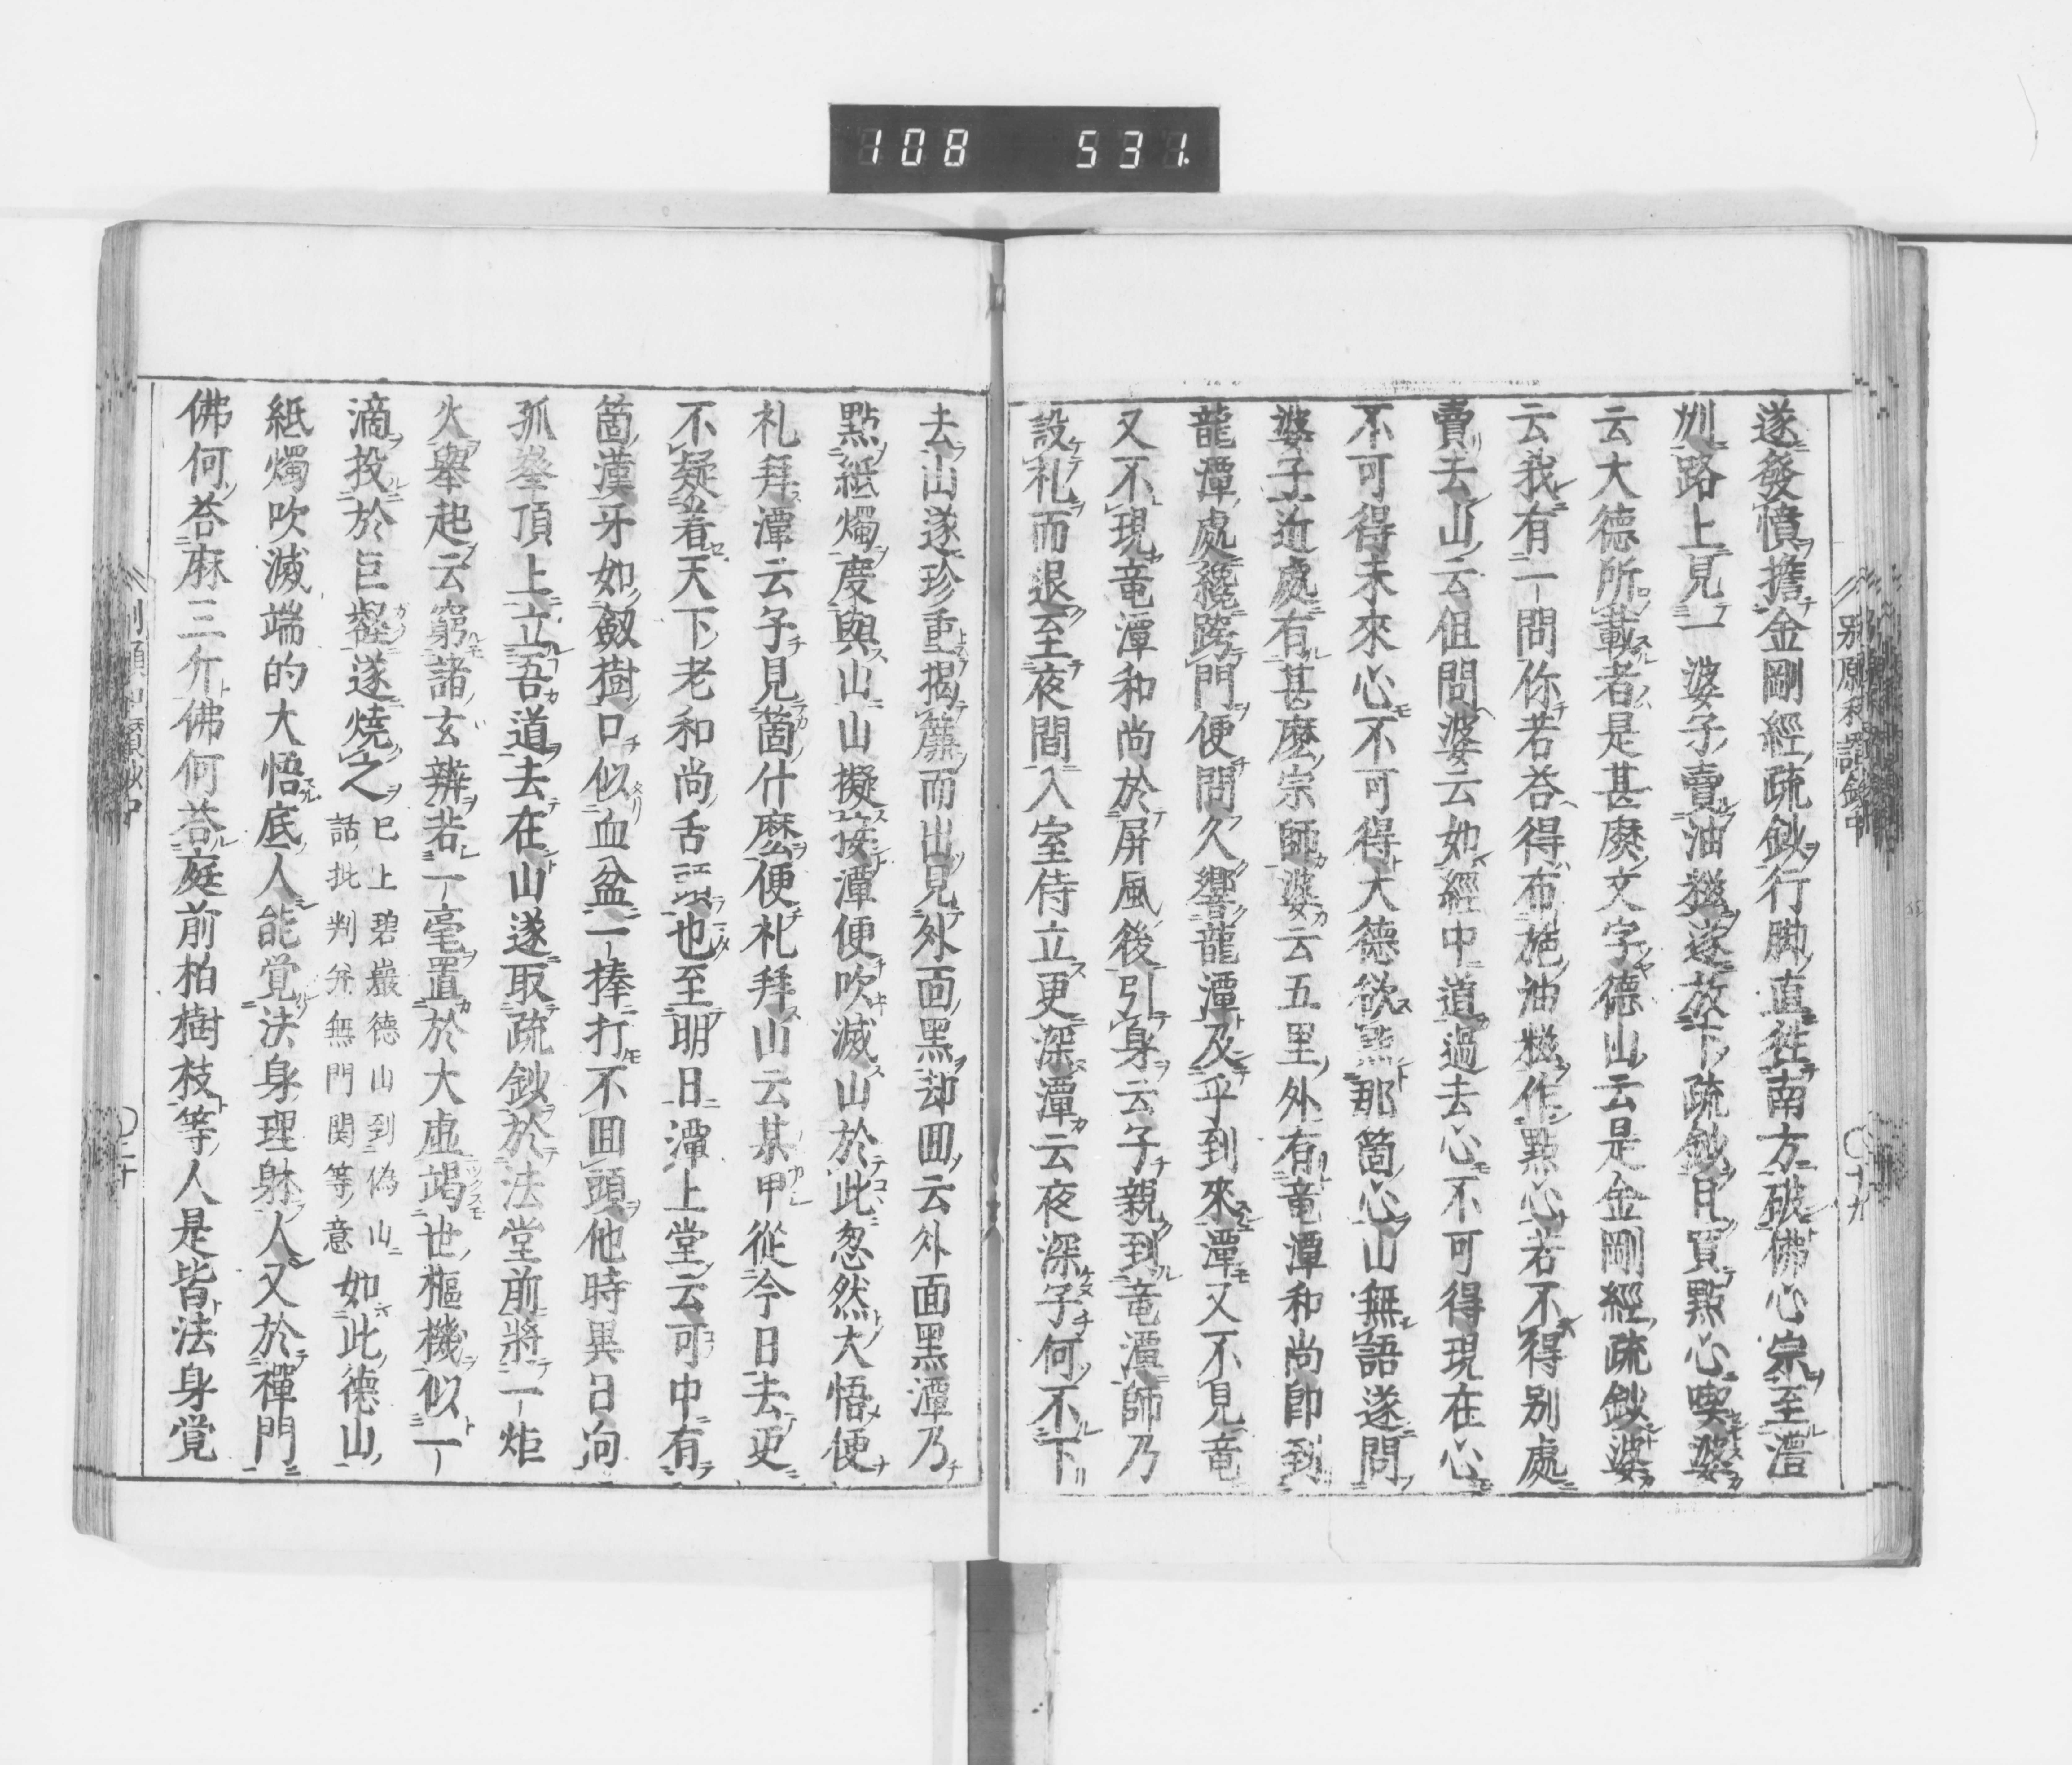 108 531.
別願和讃鈔中 〇十九
遂發憤擔金剛經疏鈔行脚直徃南方破佛心宗至澧
刕路上見一婆子賣油糍遂放下疏鈔且買點心喫婆
云大德所載者是甚麽文字德山云是金剛經疏鈔婆
云我有一問你若荅得布施油糍作點心若不得別處
賣去山云但問婆云如經中道過去心不可得現在心
不可得未來心不可得大德欲點那箇心山無語遂問
婆子近處有甚麽宗師婆云五里外有竜潭和尚即到
龍潭處纔跨門便問久響龍潭及乎到來潭又不見竜
又不現竜潭和尚於屏風後引身云子親到竜潭師乃
設礼而退至夜間入室侍立更深潭云夜深子何不下
去山遂珍重揭簾而出見外面黑却囬云外面黑潭乃
點紙燭度與山山擬接潭便吹滅山於此忽然大悟便
礼拜潭云子見箇什麽便礼拜山云某甲從今日去更
不疑着天下老和尚舌頭也至明日潭上堂云可中有
箇漢牙如劔樹口似血盆一捧打不囬頭他時異日向
孤峯頂上立吾道去在山遂取疏鈔於法堂前將一炬
火舉起云窮諸玄辨若一毫置於大虛竭世樞機似一
滴投於巨壑遂燒之 已上碧巖德山到偽山話批判并無門関等意 如此德山
紙燭吹滅端的大悟底人能覚法身理躰人又於禪門
佛何荅麻三斤佛何荅庭前柏樹枝等人是皆法身覚
〇二十